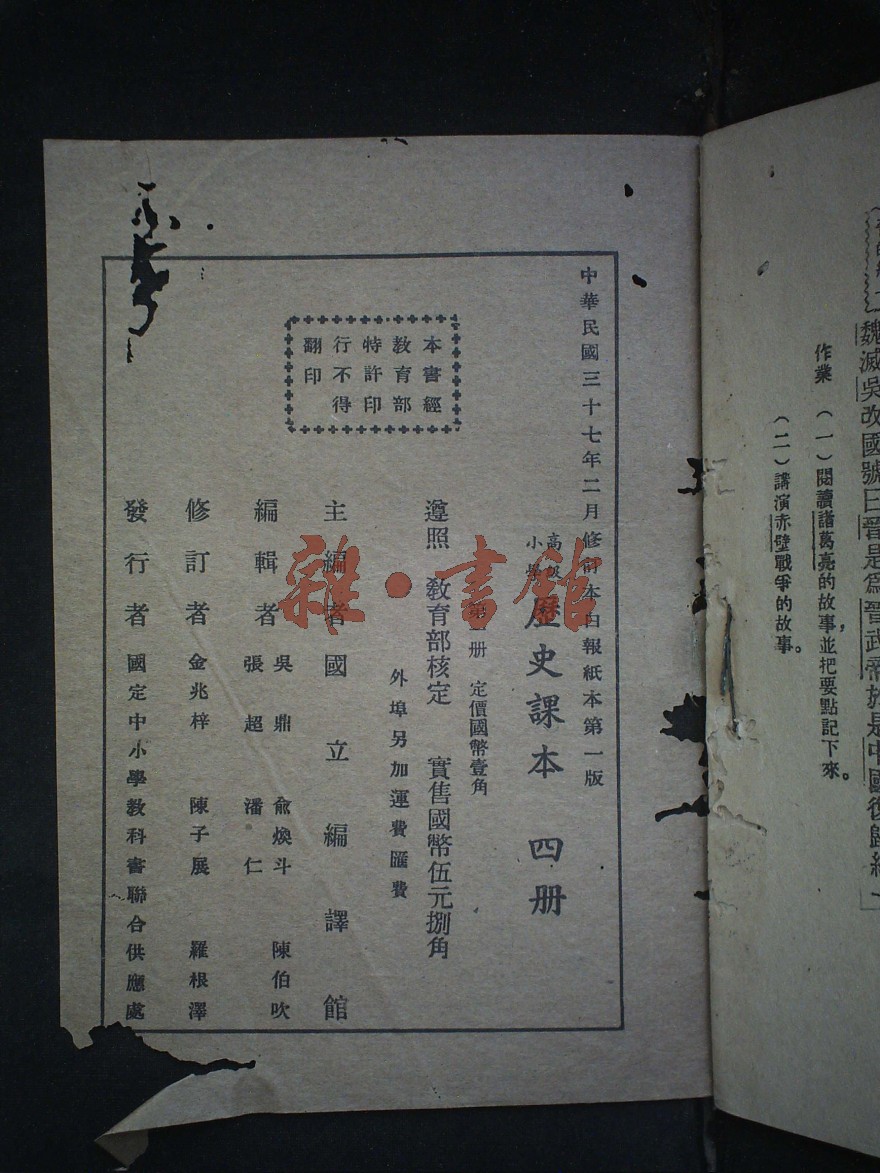 魏滅吳改國號曰晉是爲晉武帝於是中國復歸統一」
作業　(一)閱讀諸葛亮的故事，並把要點記下來。
(二)講演赤壁戰爭的故事。
中華民國三十七年二月修訂本白報紙本第一版
高級小學歷史課本　四册
第　册　定價國幣壹角
遵照　教育部核定　實售國幣伍元捌角
外埠另加運費匯費
本書經
教育部
特許印
行不得
翻印
主編者　國立編譯館
編輯者　吳鼎　俞煥斗　陳伯吹
張超　潘仁
修訂者　金兆梓　陳子展　羅根澤
發行者　國定中小學教科書聯合供應處
雜·書館